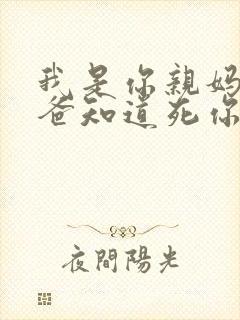 我是你親媽
爸知道死你
夜間陽光